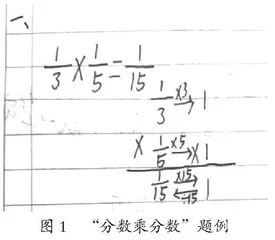 一、
1/3 × 1/5 = 1/15
1/3 ×3→ 1
× 1/5 ×5→ ×1
1/15 ×15→ ←÷15 1
图 1 “分数乘分数”题例